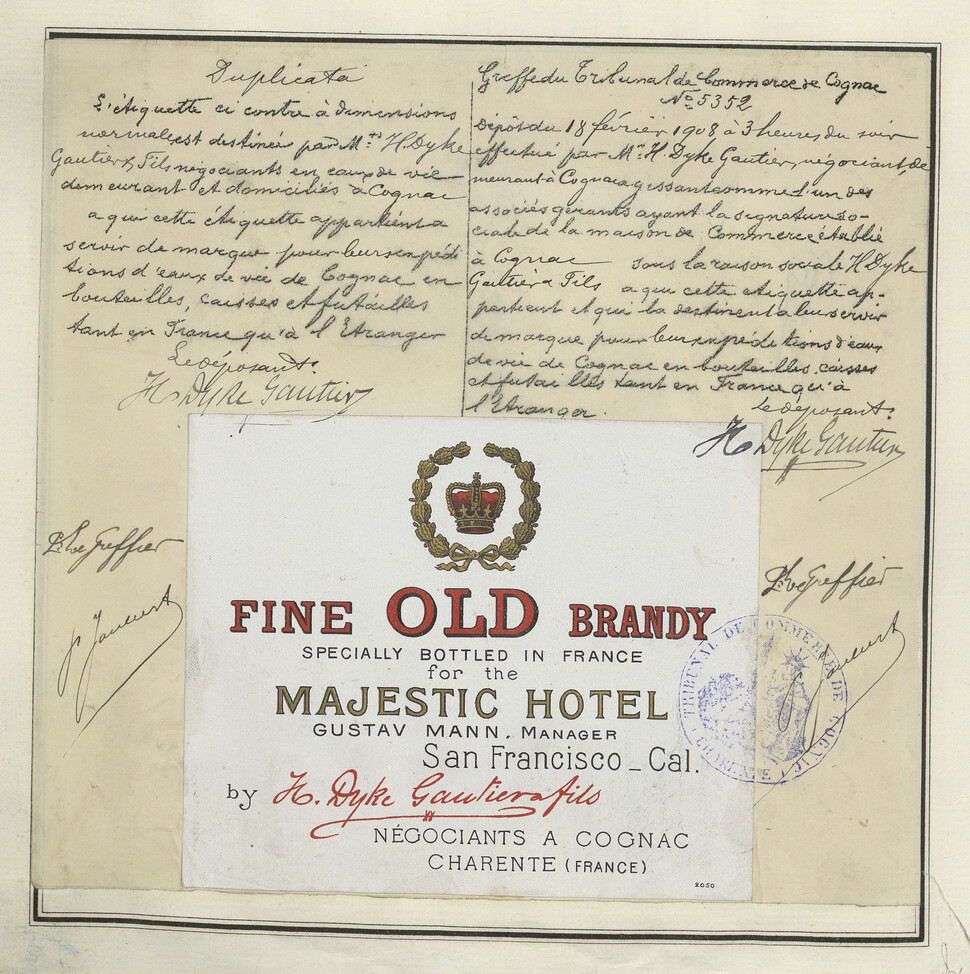 Duplicata
L'étiquette ci contre à dimensions
normales est destinée par MM. rs H Dyke
Gautier & Fils négociants en eaux de vie
demeurant et domiciliés à Cognac
a qui cette étiquette appartient a
servir de marque pour leurs expédi
tions d'eaux de vie de Cognac en
bouteilles, caisses et futailles
tant en France qu'à l'Etranger
Le déposant.
H. Dyke Gautier
Greffe du Tribunal de Commerce de Cognac
No 5352
Dépôt du 18 février 1908 à 3 heures du soir
effectué par Mr. H. Dyke Gautier, négociant, de
meurant à Cognac agissant comme l'un des
associés gérants ayant la signature so-
ciale de la maison de Commerce établie
à Cognac sous la raison sociale H Dyke
Gautier & Fils a qui cette étiquette ap-
partient et qui la destinent a leur servir
de marque pour leurs expéditions d'eaux
de vie de Cognac en bouteilles, caisses
et futailles tant en France qu'à
l'Etranger.
Le déposant.
H Dyke Gautier
P. Le Greffier
P. Le Greffier
FINE OLD BRANDY
SPECIALLY BOTTLED IN FRANCE
for the
MAJESTIC HOTEL
GUSTAV MANN, MANAGER
San Francisco - Cal.
by H. Dyke Gautier & fils
NÉGOCIANTS A COGNAC
CHARENTE (FRANCE)
2050
TRIBUNAL DE COMMERCE DE COGNAC
CHARENTE